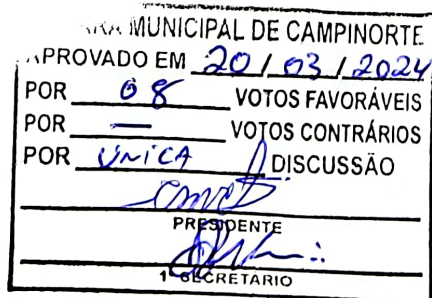 MUNICIPAL DE CAMPINORTE
APROVADO EM 20 / 03 / 2024
POR 08 VOTOS FAVORÁVEIS
POR — VOTOS CONTRÁRIOS
POR UNICA DISCUSSÃO
PRESIDENTE
1º SECRETARIO